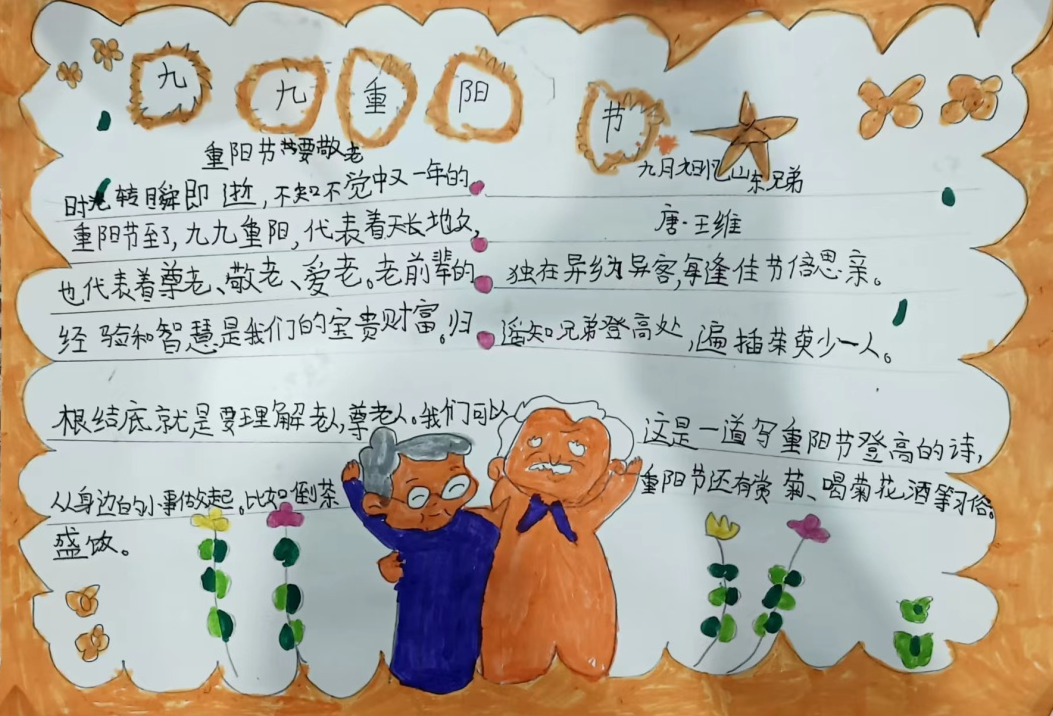 九九重阳节
重阳节要敬老
时光转瞬即逝,不知不觉中又一年的
重阳节至了,九九重阳,代表着天长地久,
也代表着尊老、敬老、爱老。老前辈的
经验和智慧是我们的宝贵财富。归
根结底就是要理解老人,尊老人。我们可以
从身边的小事做起。比如倒茶
盛饭。
九月九日忆山东兄弟
唐·王维
独在异乡为异客,每逢佳节倍思亲。
遥知兄弟登高处,遍插茱萸少一人。
这是一道写重阳节登高的诗,
重阳节还有赏菊、喝菊花酒等习俗。